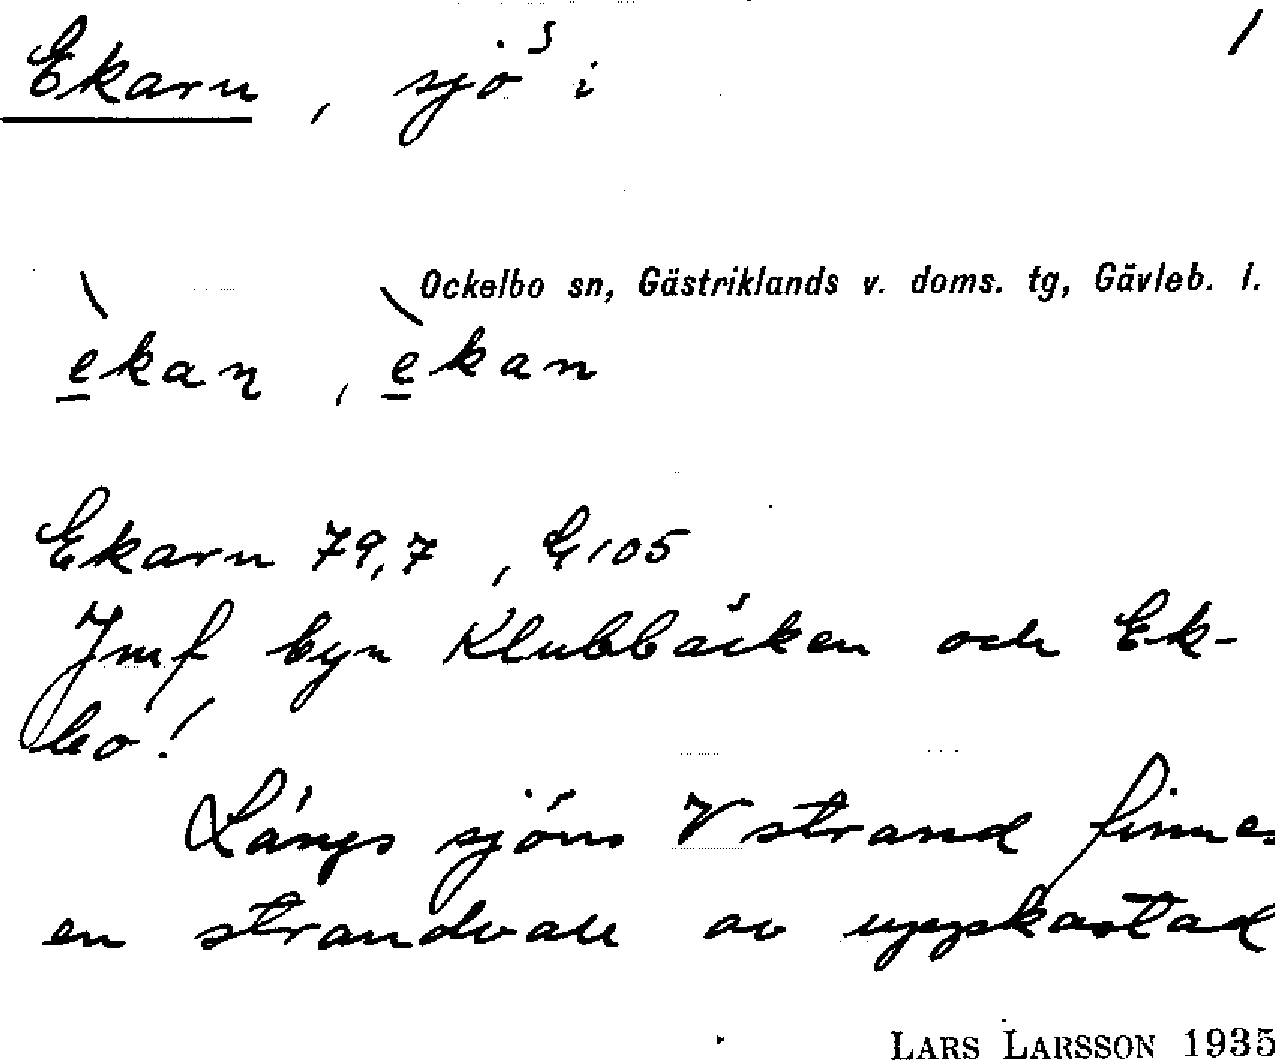 Ekarn, sjö i 1
Ockelbo sn, Gästriklands v. doms. tg, Gävleb. l.
èkaɳ, èkan
Ekarn 79,7, G105
Jmf byn Klubbäcken och Ek-
bo!
Längs sjöns V strand finnes
en strandvall av uppkastad
LARS LARSSON 1935